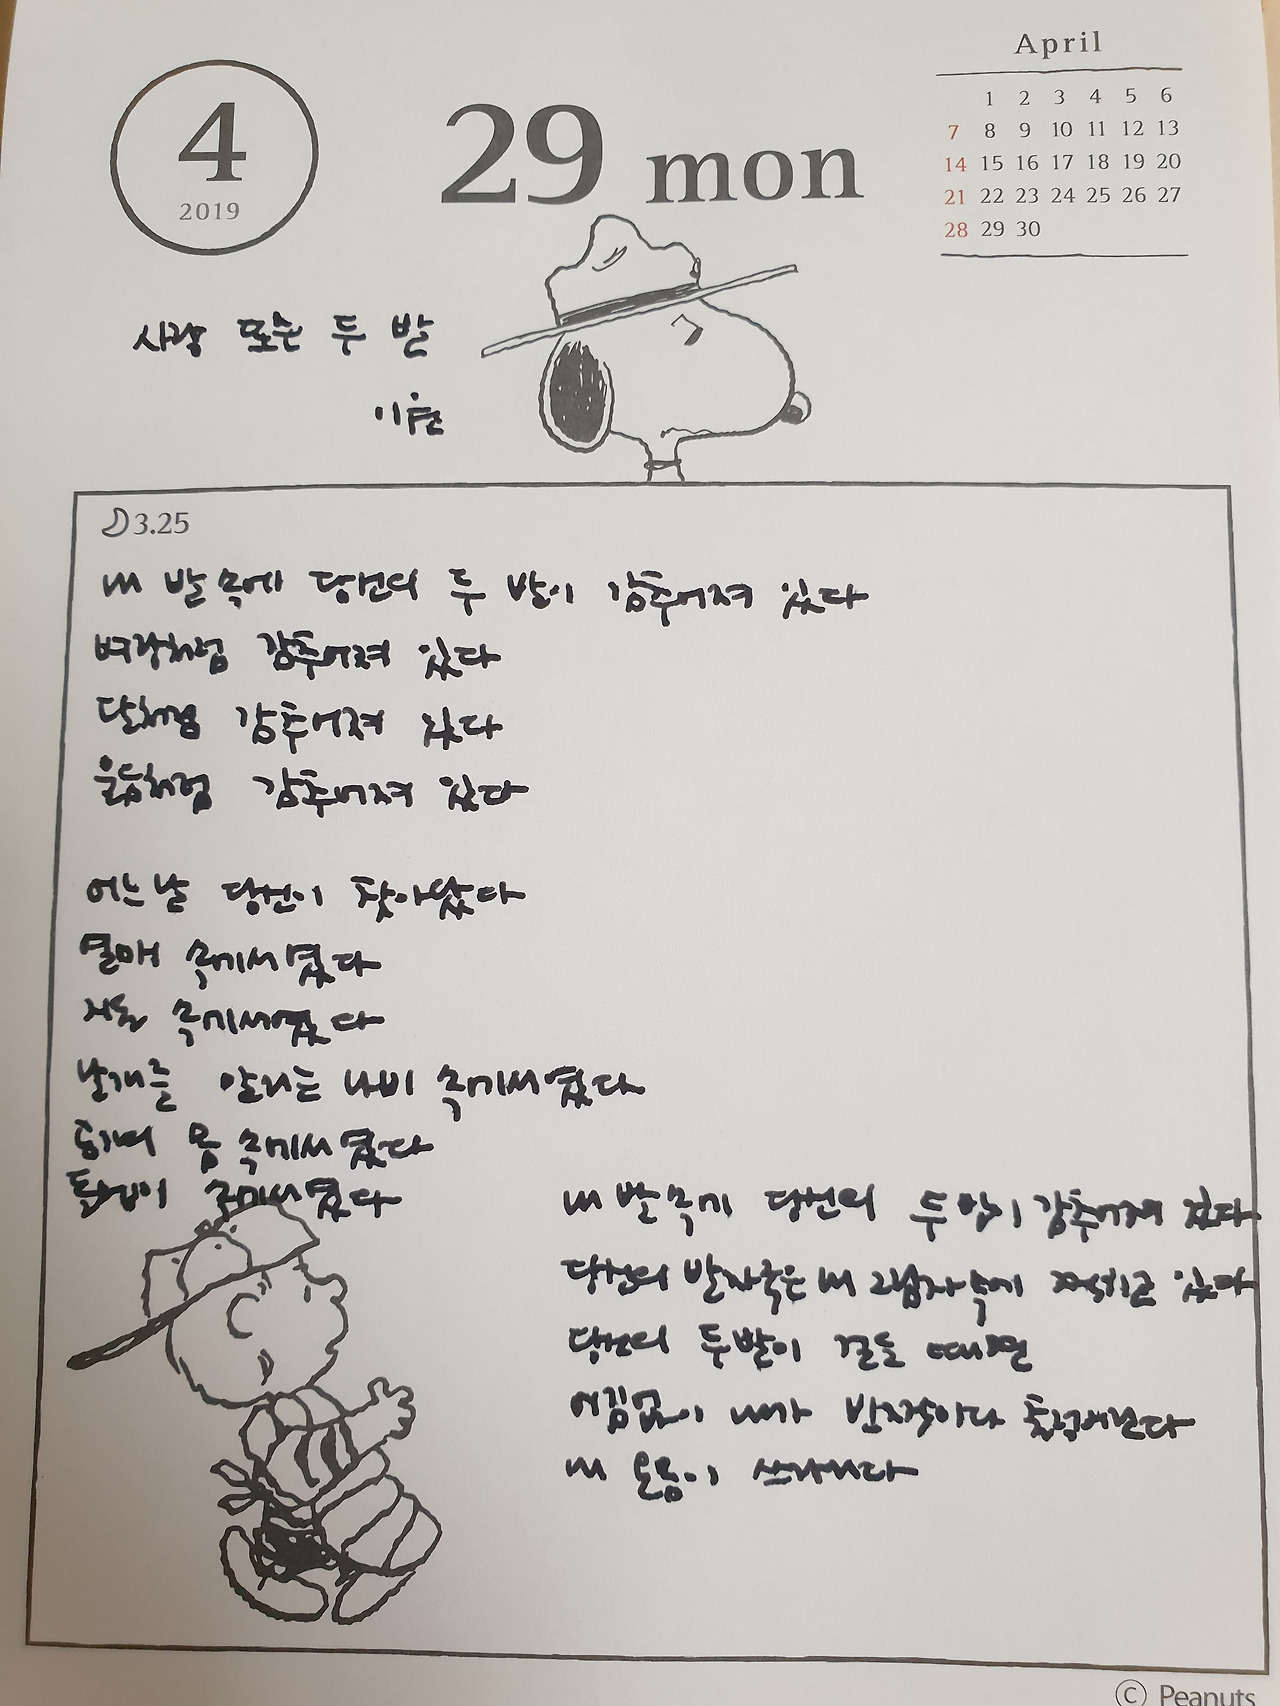 April
1 2 3 4 5 6
7 8 9 10 11 12 13
14 15 16 17 18 19 20
21 22 23 24 25 26 27
28 29 30
4
2019
29 mon
사랑 또는 두 발
이원
3.25
내 발 속에 당신의 두 발이 감추어져 있다
벼랑처럼 감추어져 있다
달처럼 감추어져 있다
울음처럼 감추어져 있다
어느날 당신이 찾아왔다
열매 속에서였다
거울 속에서였다
날개를 말리는 나비 속에서였다
공기의 몸 속에서였다
돌멩이 속에서였다
내 발 속에 당신의 두 발이 감추어져 있다
당신의 발자국은 내 그림자 속에 찍히고 있다
당신의 두 발이 걸을 때면
어김없이 내가 반짝인다 출렁거린다
내 온몸이 쓰라리다
© Peanuts